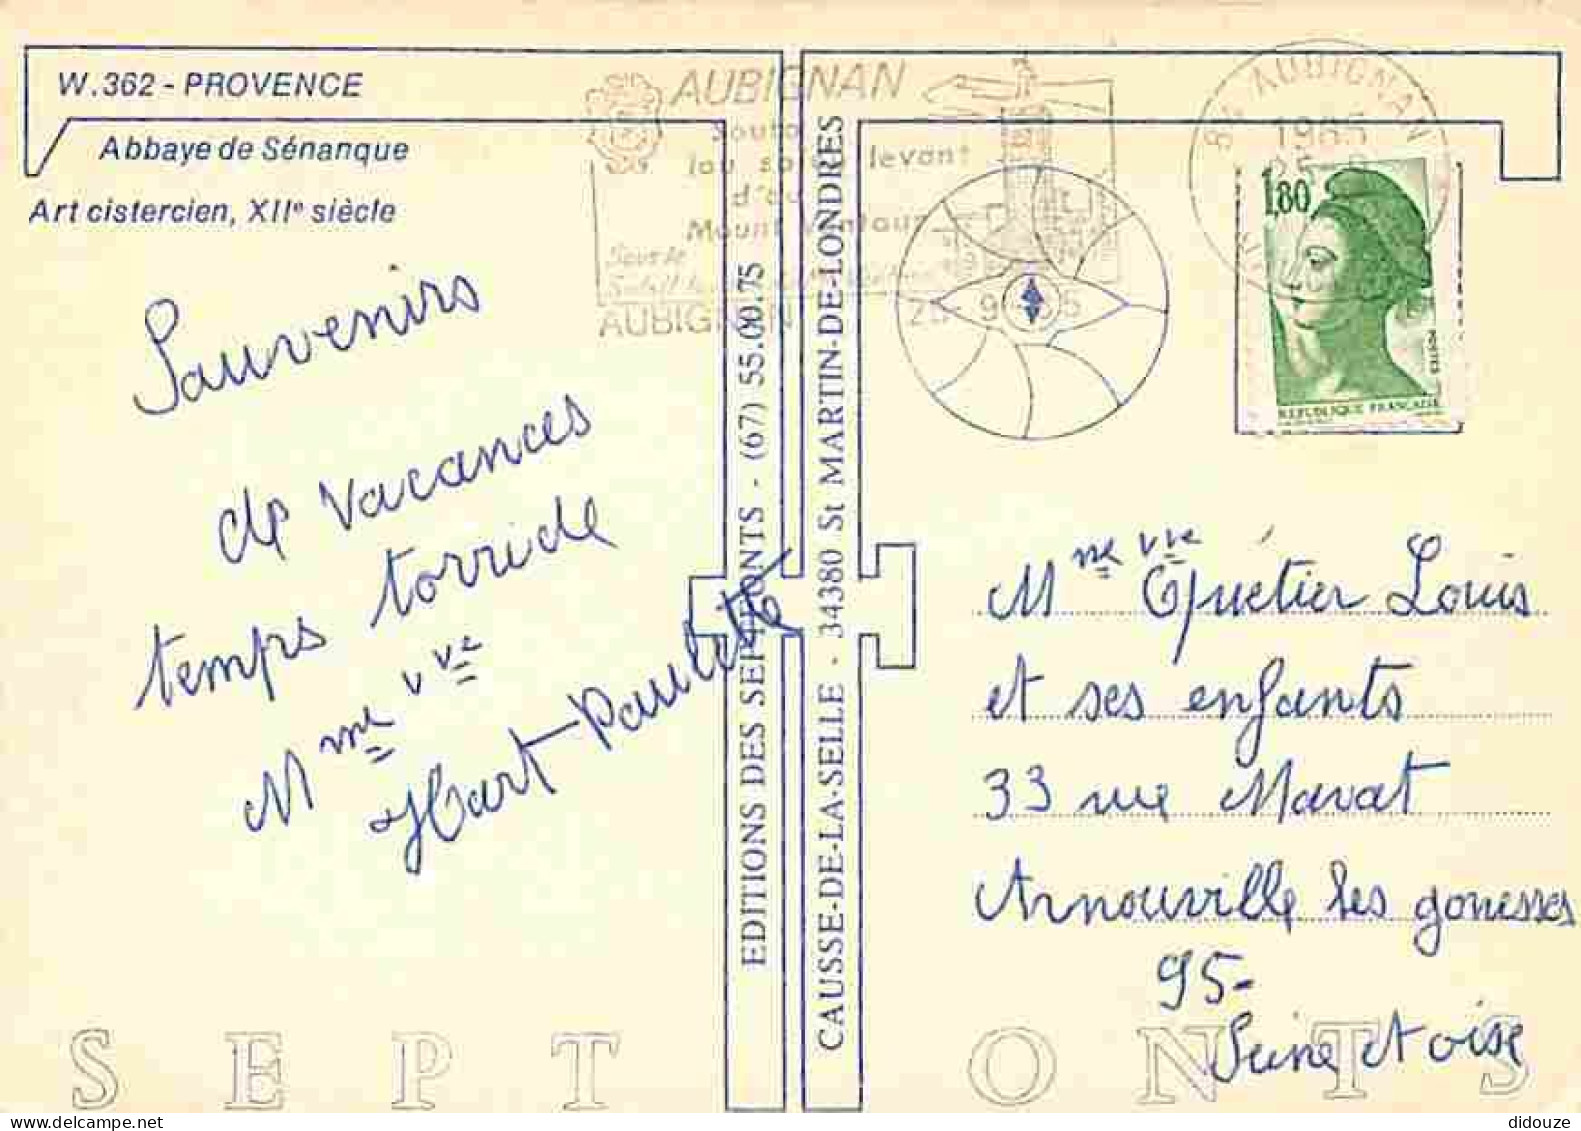 W.362 - PROVENCE
Abbaye de Sénanque
Art cistercien, XIIe siècle
AUBIGNAN
Souto
lou levant
Mount Ventour
Sous le
AUBIGNAN
84 AUBIGNAN
1985
1,80
POSTES
REPUBLIQUE FRANÇAISE
Souvenirs
de vacances
temps torride
Mme vve
Hart-Paulette
EDITIONS DES SEPT PONTS - (67) 55.00.75
CAUSSE-DE-LA-SELLE - 34380 St MARTIN-DE-LONDRES
Mme vve Quétier Louis
et ses enfants
33 rue Marat
Arnouville les gonesses
95-
Seine et oise
SEPT
ONTS
didouze